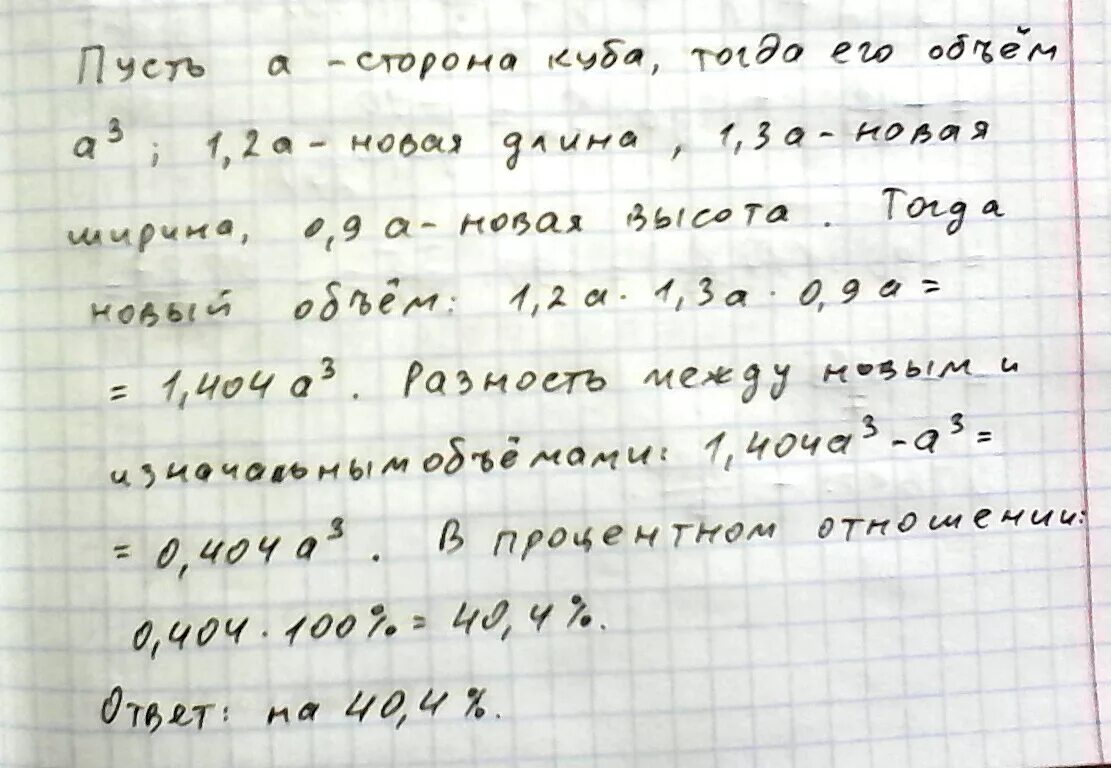 Пусть a - сторона куба, тогда его объём
a³; 1,2a - новая длина, 1,3a - новая
ширина, 0,9a - новая высота. Тогда
новый объём: 1,2a · 1,3a · 0,9a =
= 1,404a³. Разность между новым и
изначальным объёмами: 1,404a³ - a³ =
= 0,404a³. В процентном отношении:
0,404 · 100% = 40,4%.
Ответ: на 40,4%.